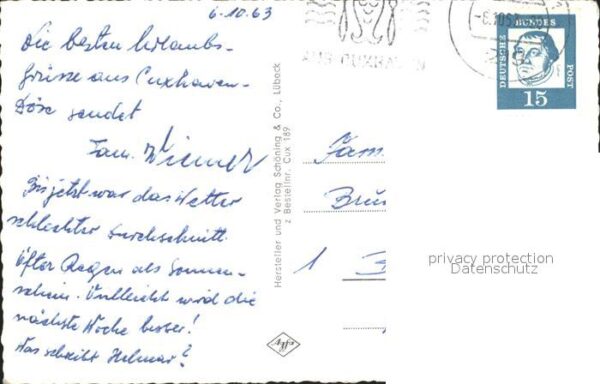 6.10.63
Die besten Urlaubs-
grüsse aus Cuxhaven-
Döse sendet
Fam. Wiemer
Bis jetzt war das Wetter
schlechter Durchschnitt.
Öfter Regen als Sonnen-
schein. Vielleicht wird die
nächste Woche besser!
Was schreibt Helmar?
Hersteller und Verlag Schöning & Co., Lübeck
z Bestellnr. Cux 189
CUXHAVEN
DEUTSCHE BUNDES POST
15
Fam.
1
privacy protection
Datenschutz